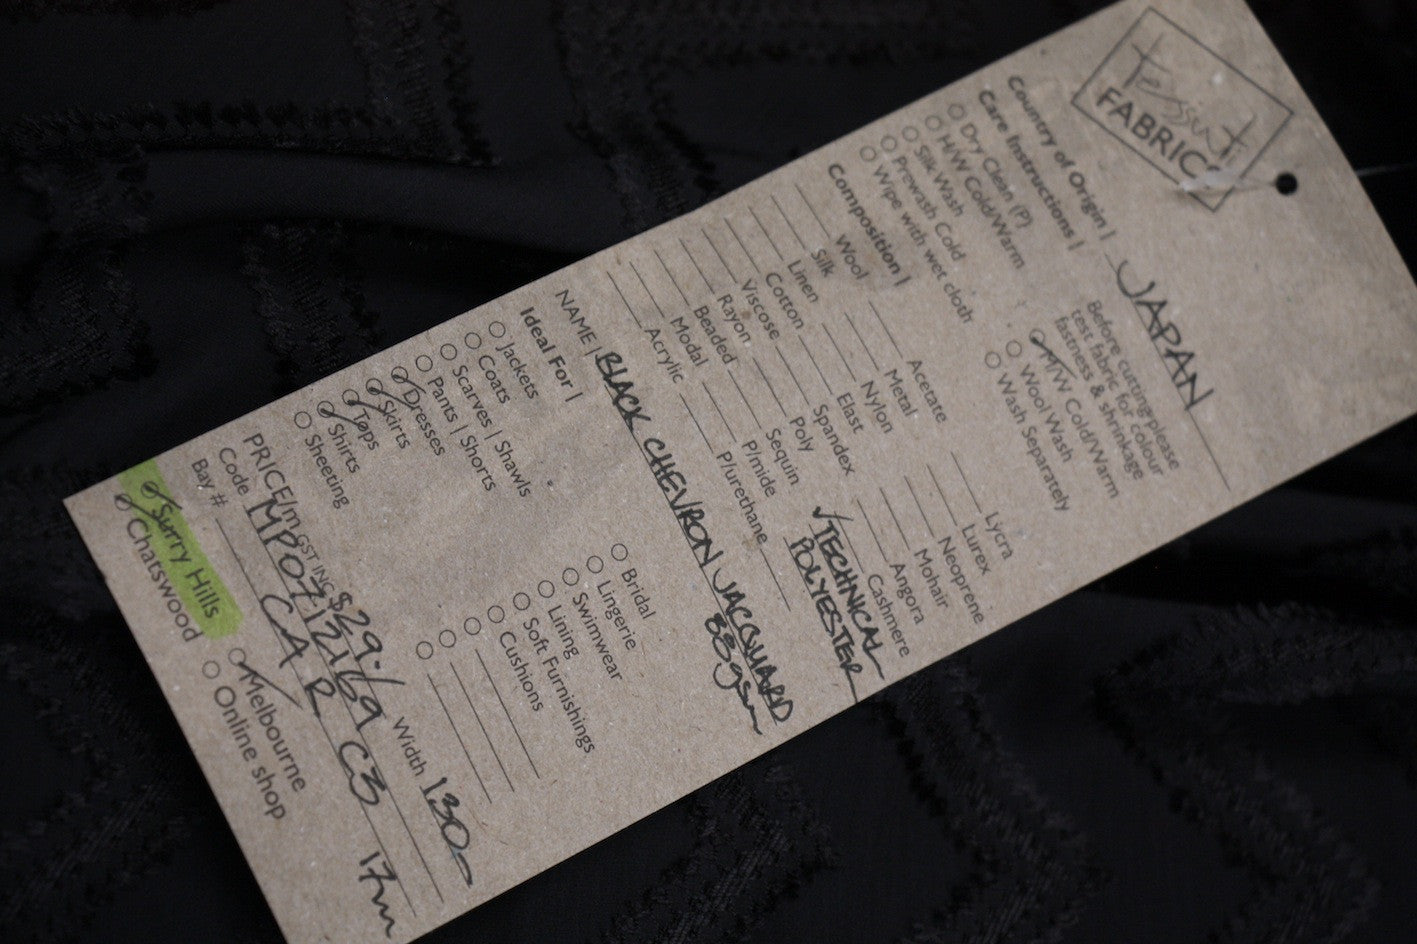 Tessuti
FABRICS
Country of Origin | JAPAN
Care Instructions |
Dry Clean (P)
H/W Cold/Warm
Silk Wash
Prewash Cold
Wipe with wet cloth
Before cutting please
test fabric for colour
fastness & shrinkage
H/W Cold/Warm
Wool Wash
Wash Separately
Composition |
Wool
Silk
Linen
Cotton
Viscose
Rayon
Beaded
Modal
Acrylic
Acetate
Metal
Nylon
Elast
Spandex
Poly
Sequin
P/mide
P/urethane
Lycra
Lurex
Neoprene
Mohair
Angora
Cashmere
✓ TECHNICAL
POLYESTER
NAME | BLACK CHEVRON JACQUARD
88gsm
Ideal For |
Jackets
Coats
Scarves | Shawls
Pants | Shorts
Dresses
Skirts
Tops
Shirts
Sheeting
Bridal
Lingerie
Swimwear
Lining
Soft Furnishings
Cushions
PRICE/m GST INC $29.-/ Width 130-
Code MP07121169 C3
Bay # CAR 17m
Surry Hills
Chatswood
Melbourne
Online shop